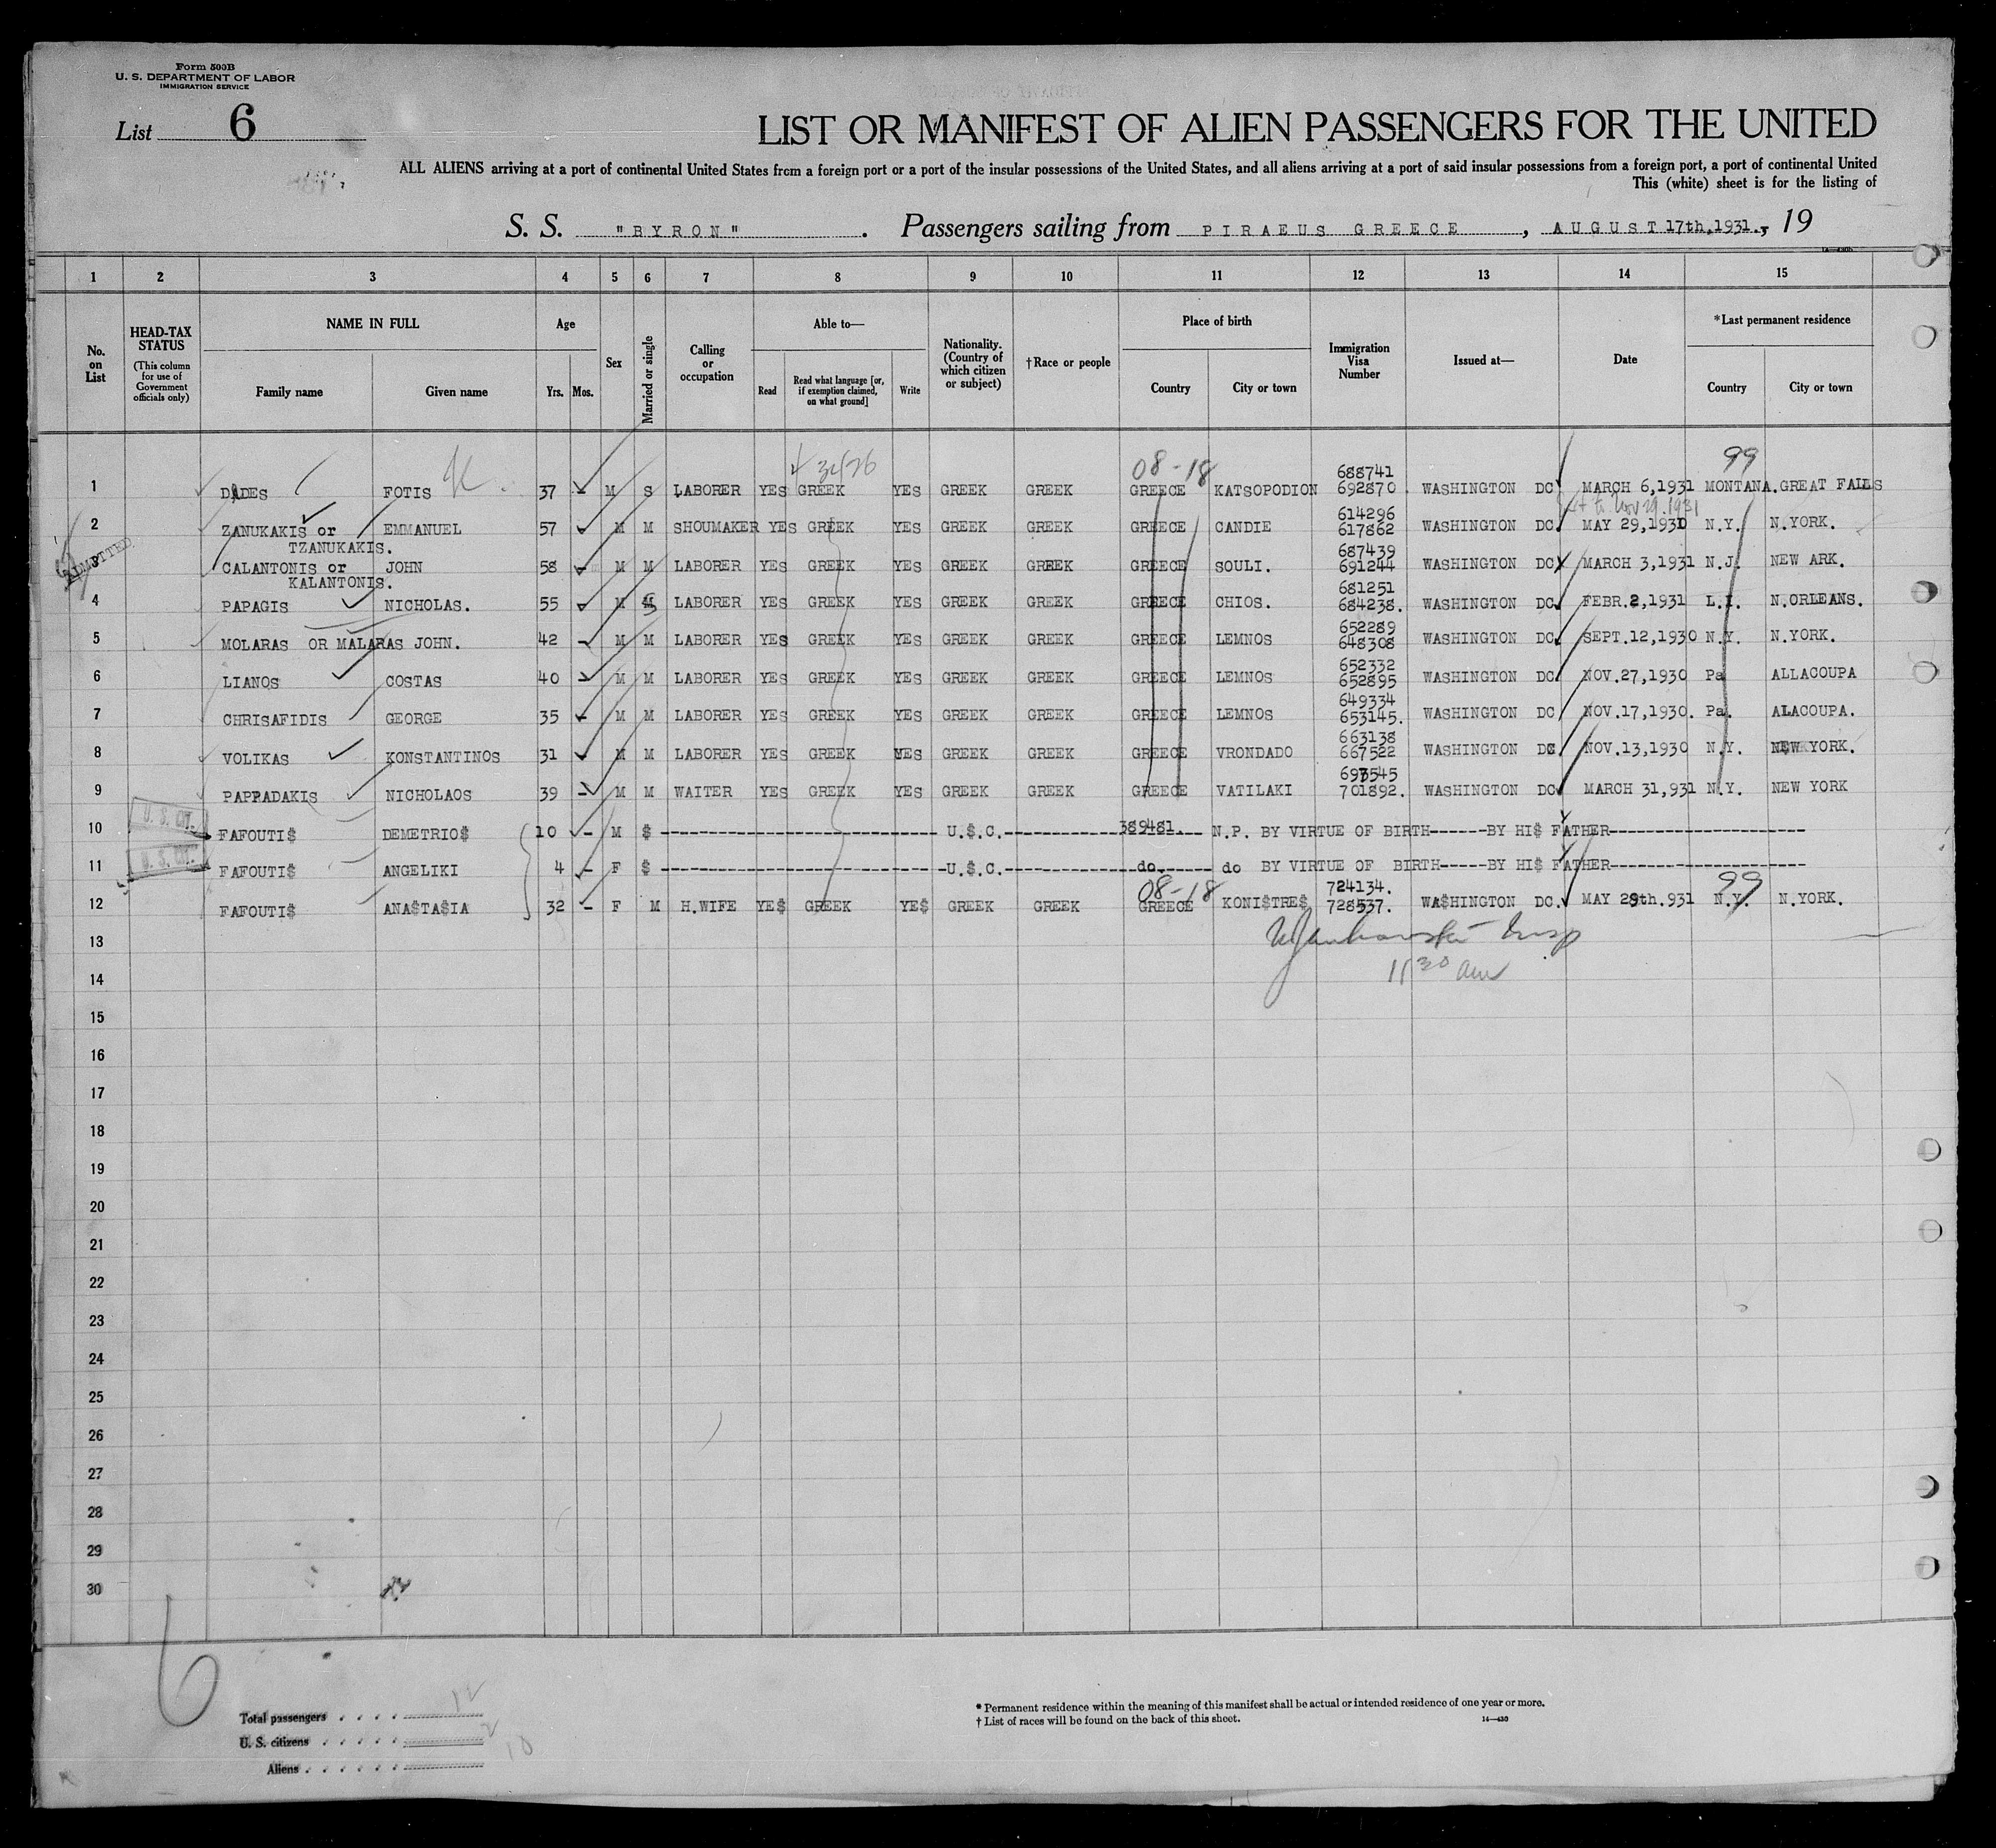 Form 500B
U. S. DEPARTMENT OF LABOR
IMMIGRATION SERVICE
List 6
LIST OR MANIFEST OF ALIEN PASSENGERS FOR THE UNITED
ALL ALIENS arriving at a port of continental United States from a foreign port or a port of the insular possessions of the United States, and all aliens arriving at a port of said insular possessions from a foreign port, a port of continental United
This (white) sheet is for the listing of
S. S. "BYRON". Passengers sailing from PIRAEUS GREECE, AUGUST 17th,1931., 19
1 2 3 4 5 6 7 8 9 10 11 12 13 14 15
No. on List
HEAD-TAX STATUS (This column for use of Government officials only)
NAME IN FULL Family name Given name
Age Yrs. Mos.
Sex
Married or single
Calling or occupation
Able to— Read Read what language [or, if exemption claimed, on what ground] Write
Nationality. (Country of which citizen or subject)
†Race or people
Place of birth Country City or town
Immigration Visa Number
Issued at—
Date
*Last permanent residence Country City or town
08-18 99
688741
1 DADES FOTIS 37 - M S LABORER YES GREEK YES GREEK GREEK GREECE KATSOPODION 692870. WASHINGTON DC MARCH 6,1931 MONTANA.GREAT FALLS
Nov 29.1931
614296
2 ZANUKAKIS or EMMANUEL 57 M M SHOUMAKER YES GREEK YES GREEK GREEK GREECE CANDIE 617862 WASHINGTON DC MAY 29,1931 N.Y. N.YORK.
TZANUKAKIS.
ADMITTED
687439
3 CALANTONIS or JOHN 58 M M LABORER YES GREEK YES GREEK GREEK GREECE SOULI. 691244 WASHINGTON DC MARCH 3,1931 N.J. NEW ARK.
KALANTONIS.
681251
4 PAPAGIS NICHOLAS. 55 M S LABORER YES GREEK YES GREEK GREEK GREECE CHIOS. 684238. WASHINGTON DC FEBR.2,1931 L.I. N.ORLEANS.
652289
5 MOLARAS OR MALARAS JOHN. 42 - M M LABORER YES GREEK YES GREEK GREEK GREECE LEMNOS 648308 WASHINGTON DC SEPT.12,1930 N.Y. N.YORK.
652332
6 LIANOS COSTAS 40 M M LABORER YES GREEK YES GREEK GREEK GREECE LEMNOS 652895 WASHINGTON DC NOV.27,1930 Pa ALLACOUPA
649334
7 CHRISAFIDIS GEORGE 35 M M LABORER YES GREEK YES GREEK GREEK GREECE LEMNOS 653145. WASHINGTON DC NOV.17,1930. Pa. ALACOUPA.
663138
8 VOLIKAS KONSTANTINOS 31 M M LABORER YES GREEK YES GREEK GREEK GREECE VRONDADO 667522 WASHINGTON DC NOV.13,1930 N.Y. NEW YORK.
9 PAPPADAKIS NICHOLAOS 39 - M M WAITER YES GREEK YES GREEK GREEK GREECE VATILAKI 701892. WASHINGTON DC MARCH 31,931 N.Y. NEW YORK
U. S. CIT.
10 FAFOUTI$ DEMETRIO$ 10 - M $ ---- U.$.C. ---- 389481. N.P. BY VIRTUE OF BIRTH------BY HI$ FATHER----
U. S. CIT.
11 FAFOUTI$ ANGELIKI 4 - F $ ---- U.$.C. ---- do. ---- do BY VIRTUE OF BIRTH-----BY HI$ FATHER----
08-18 724134. 99
12 FAFOUTI$ ANA$TA$IA 32 - F M H.WIFE YE$ GREEK YE$ GREEK GREEK GREECE KONI$TRE$ 728537. WA$HINGTON DC. MAY 28th.931 N.Y. N.YORK.
13
11 30 am
14
15
16
17
18
19
20
21
22
23
24
25
26
27
28
29
30
6
Total passengers . . . . 12
U. S. citizens . . . . . 2
Aliens . . . . . . 10
* Permanent residence within the meaning of this manifest shall be actual or intended residence of one year or more.
† List of races will be found on the back of this sheet. 14—430